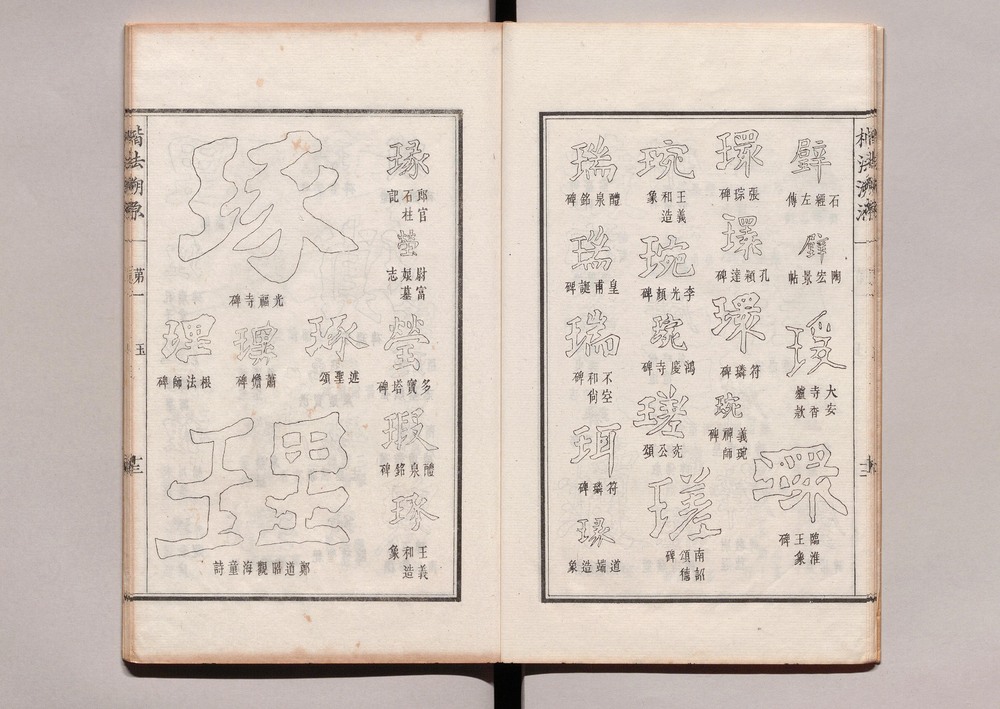 璧
石經左傳
璧
陶宏景帖
瑗
大安寺香爐款
環
臨淮王象碑
環
張琮碑
環
孔穎達碑
環
符璘碑
琬
義琬禪師碑
琬
王義和造象
琬
李光顏碑
琬
鴻慶寺碑
瑳
兖公頌
瑳
南詔頌德碑
瑞
醴泉銘碑
瑞
皇甫誕碑
瑞
不空和尙碑
珥
符璘碑
瑑
道端造象
瑑
郎官石柱記
瑩
尉富娘墓志
瑩
多寶塔碑
瑕
醴泉銘碑
琢
王義和造象
琢
光福寺碑
琢
述聖頌
理
蕭憺碑
理
根法師碑
理
鄭道昭觀海童詩
楷法溯源
第一
玉